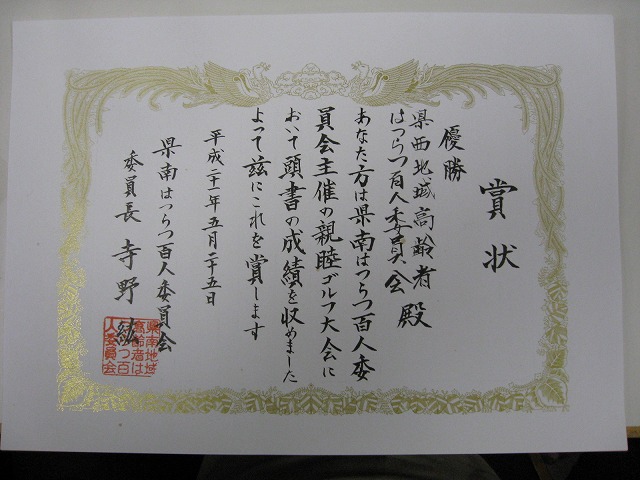 賞状
優勝
県西地域高齢者
はつらつ百人委員会 殿
あなた方は県南はつらつ百人委
員会主催の親睦ゴルフ大会に
おいて頭書の成績を収めました
よって茲にこれを賞します
平成二十一年五月二十五日
県南はつらつ百人委員会
委員長 寺野 紘
県南地域
高齢者は
つらつ百
人委員会